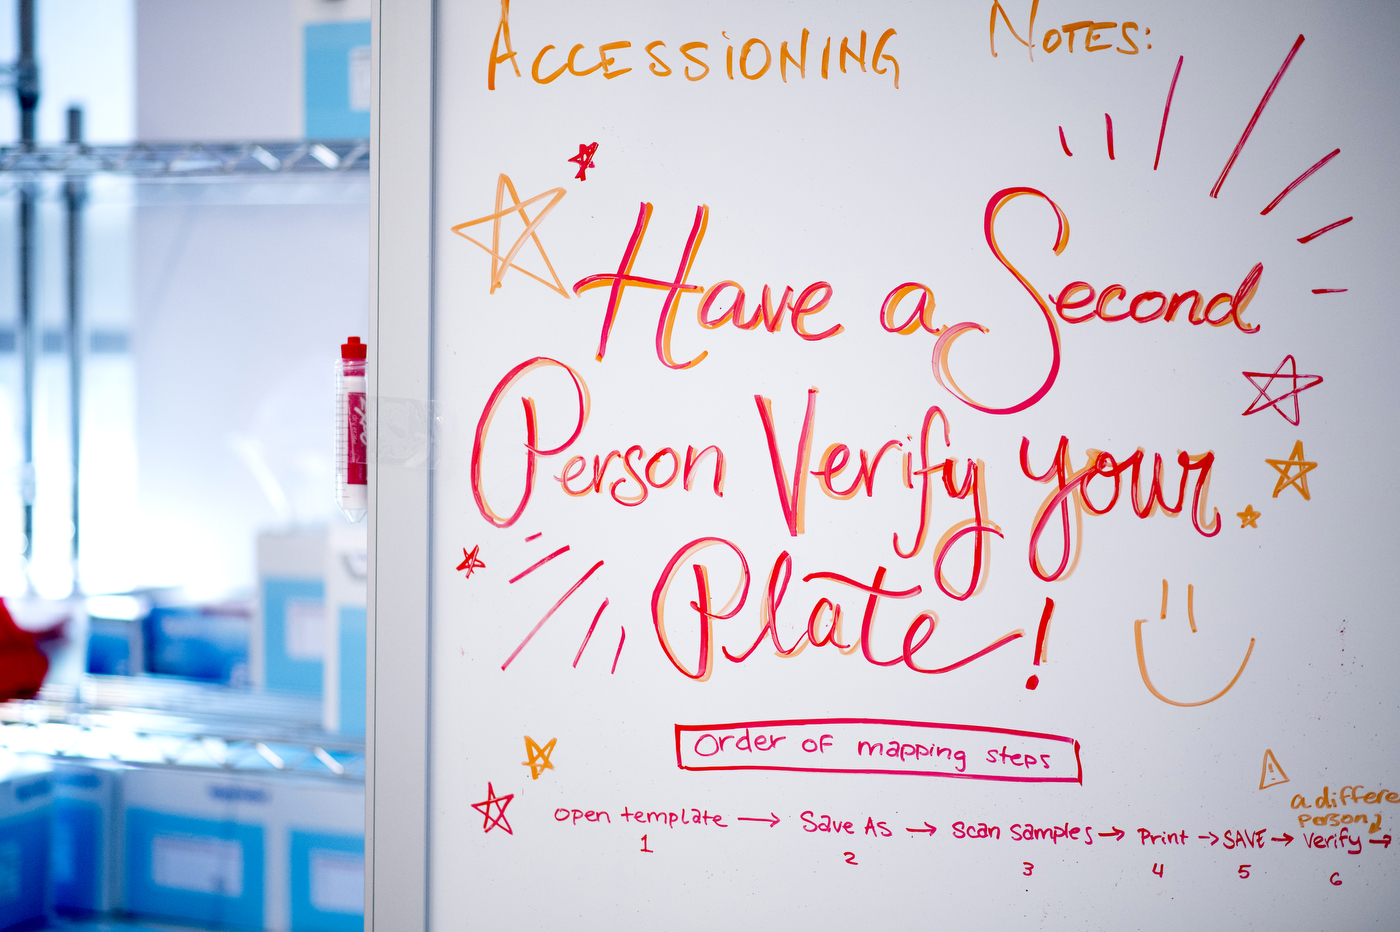 ACCESSIONING NOTES:
Have a Second
Person Verify your
Plate!
Order of mapping steps
a differe
person
open template → Save As → Scan samples → Print → SAVE → Verify →
1 2 3 4 5 6